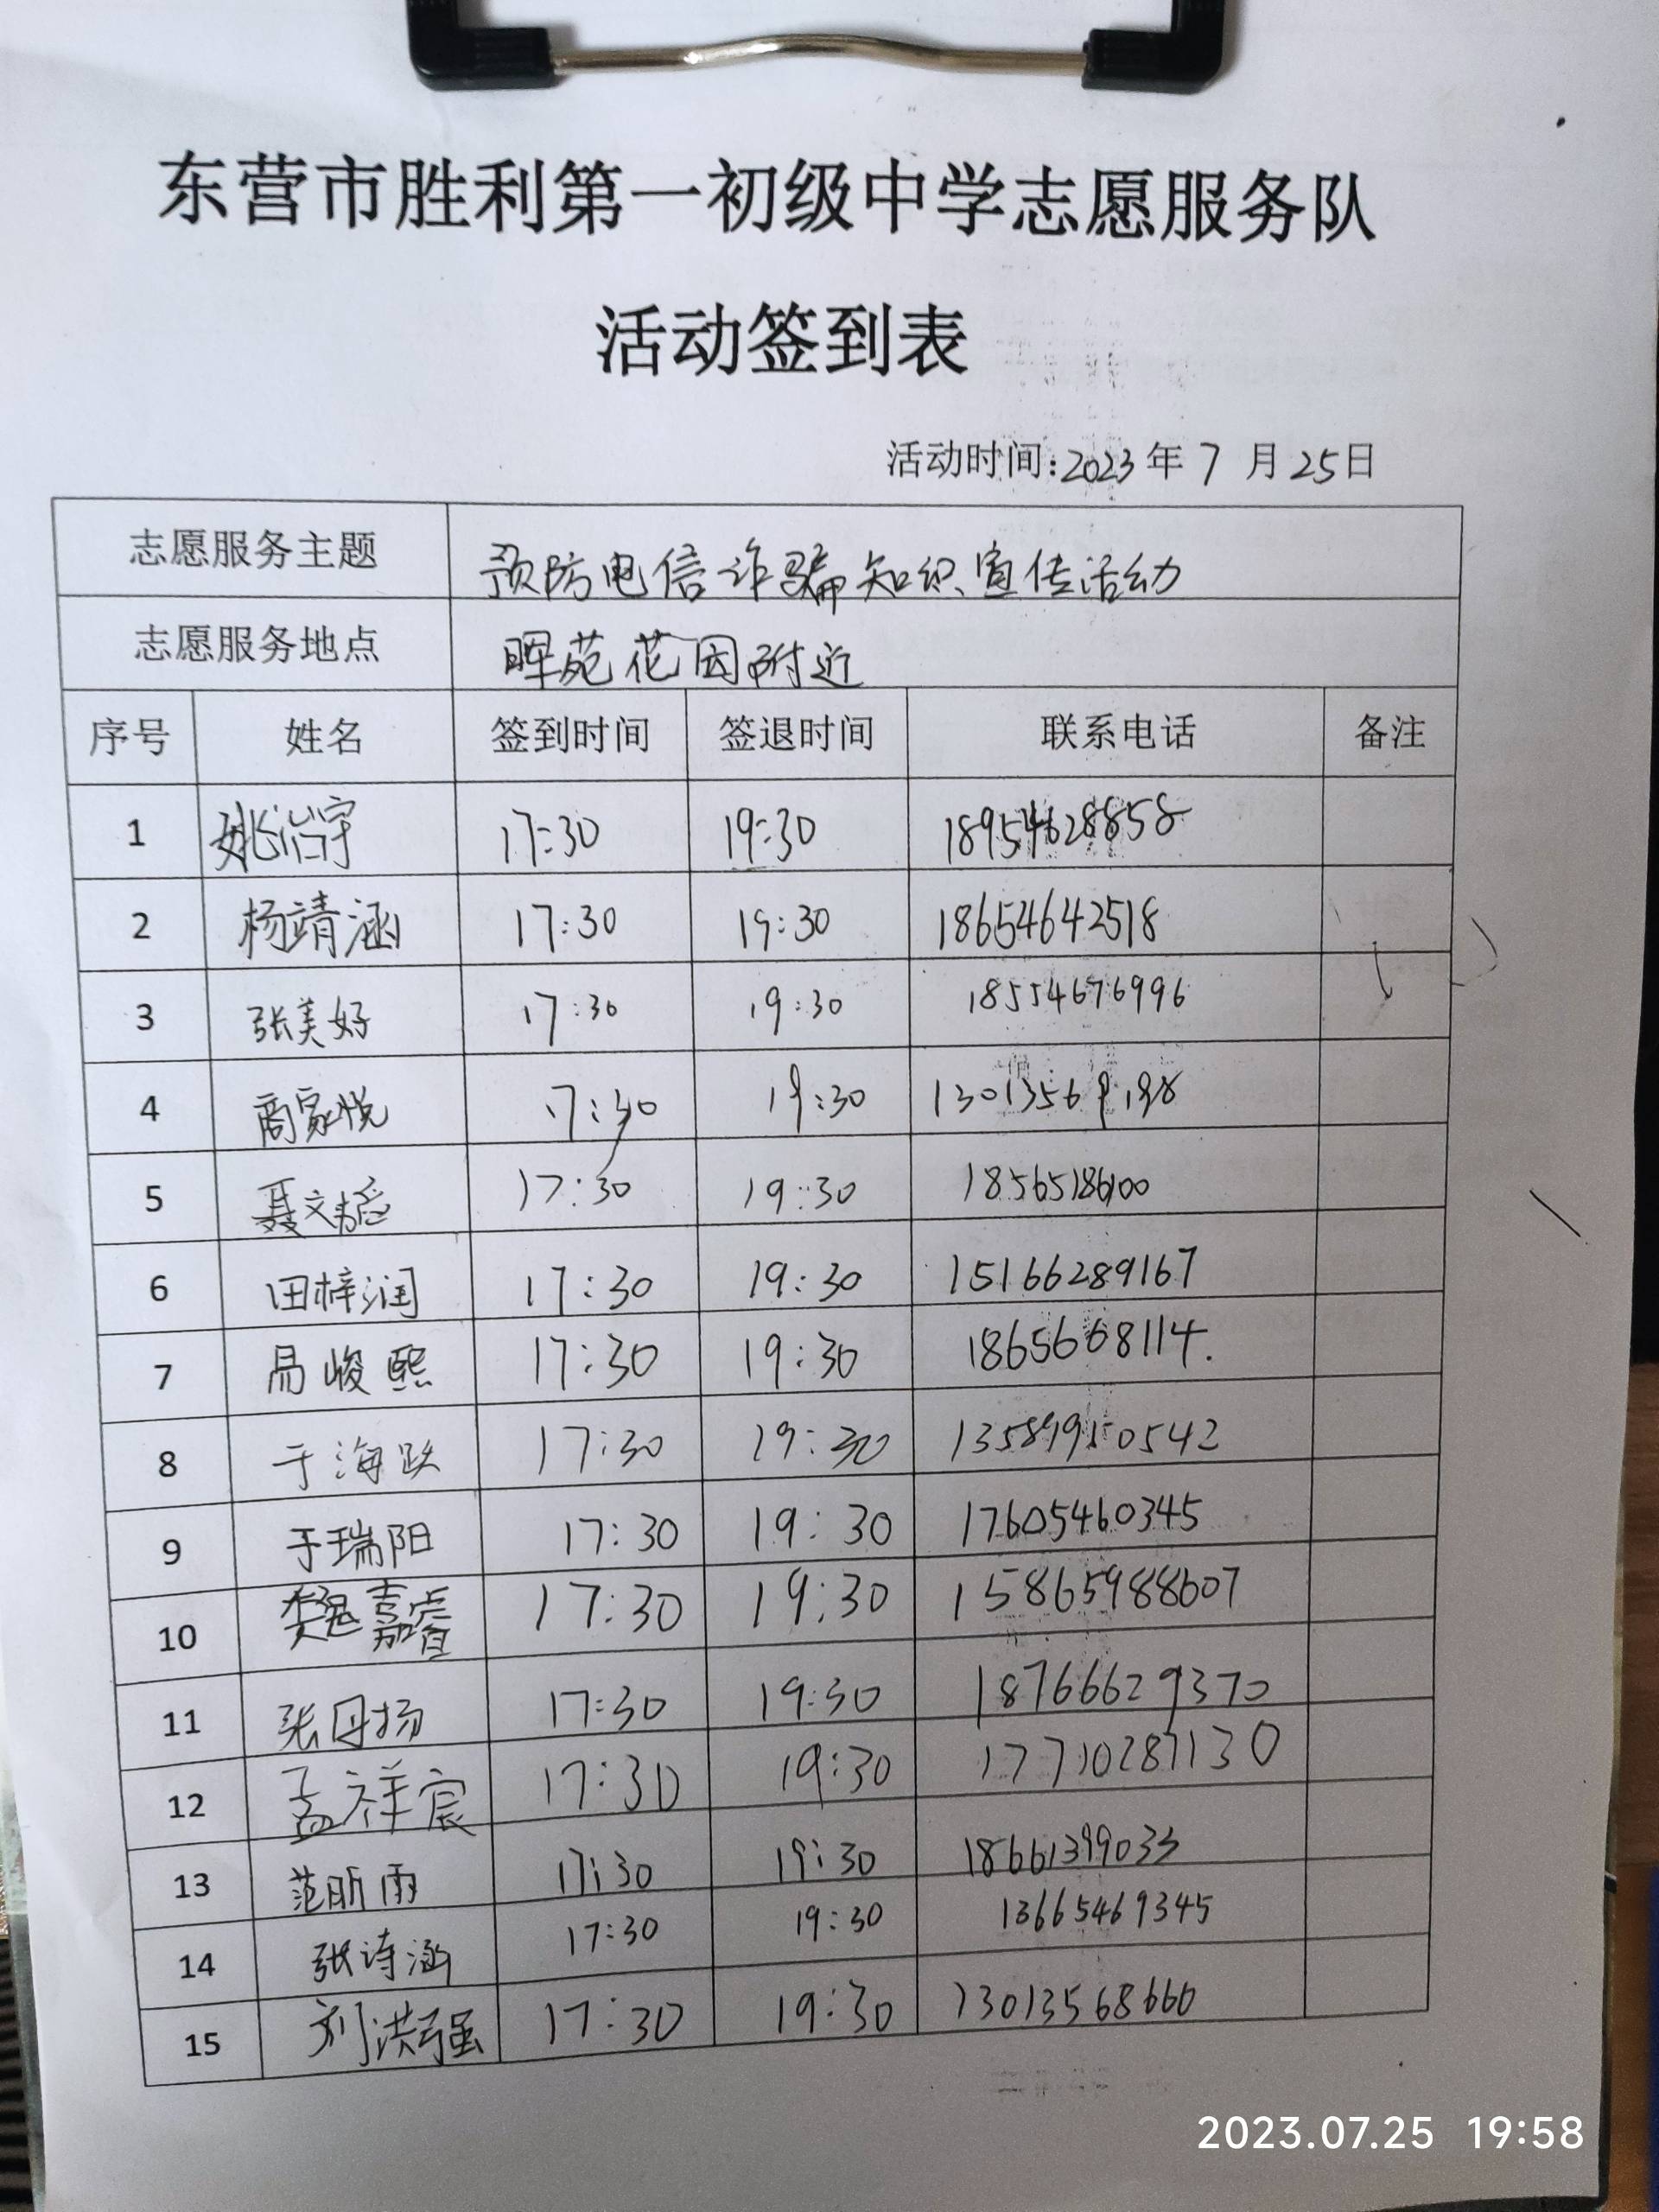 东营市胜利第一初级中学志愿服务队
活动签到表
活动时间:2023年7月25日
志愿服务主题 预防电信诈骗知识宣传活动
志愿服务地点 晖苑花园附近
序号 姓名 签到时间 签退时间 联系电话 备注
1 姚浩宇 17:30 19:30 18954628858
2 杨靖涵 17:30 19:30 18654642518
3 张美好 17:30 19:30 18554676996
4 商家悦 17:30 19:30
5 聂文韬 17:30 19:30 18565186100
6 田梓润 17:30 19:30 15166289167
7 峻熙 17:30 19:30 1865668114.
8 于海跃 17:30 19:30 13589950542
9 于瑞阳 17:30 19:30 17605460345
10 嘉睿 17:30 19:30 15865988607
11 张丹扬 17:30 19:30 18766629370
12 孟祥宸 17:30 19:30 17710287130
13 范昕雨 17:30 19:30 18661399033
14 张诗涵 17:30 19:30 13665469345
15 刘洪强 17:30 19:30 13013568660
2023.07.25 19:58